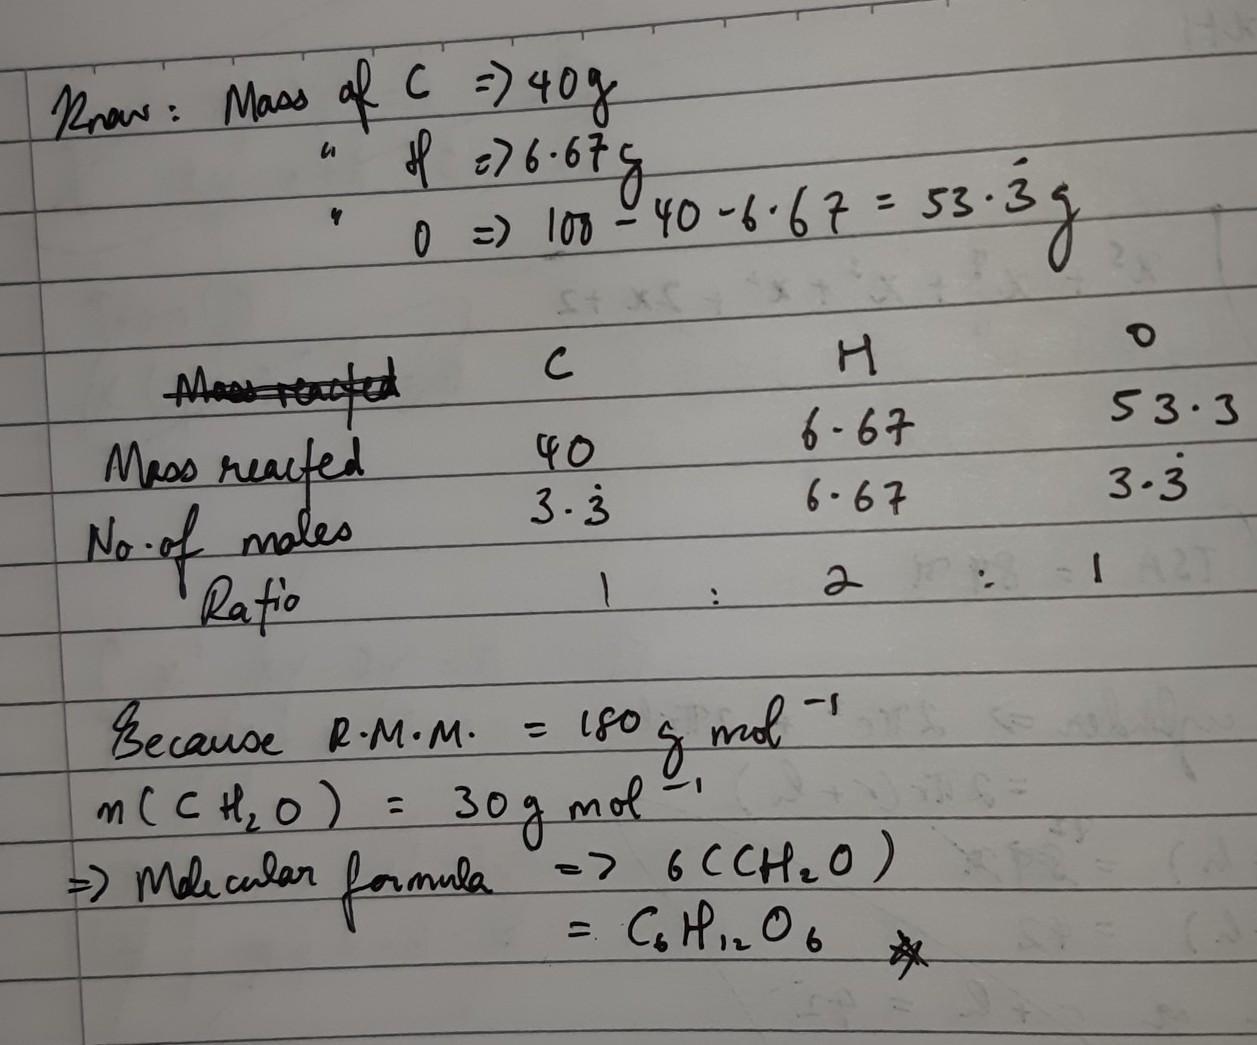 Know: Mass of C => 40g
" H => 6.67g
" O => 100 - 40 - 6.67 = 53.3̇g
C H O
Mass reacted 40 6.67 53.3
No. of moles 3.3̇ 6.67 3.3̇
Ratio 1 : 2 : 1
Because R.M.M. = 180 g mol⁻¹
m(CH₂O) = 30g mol⁻¹
=> Molecular formula => 6(CH₂O)
= C₆H₁₂O₆